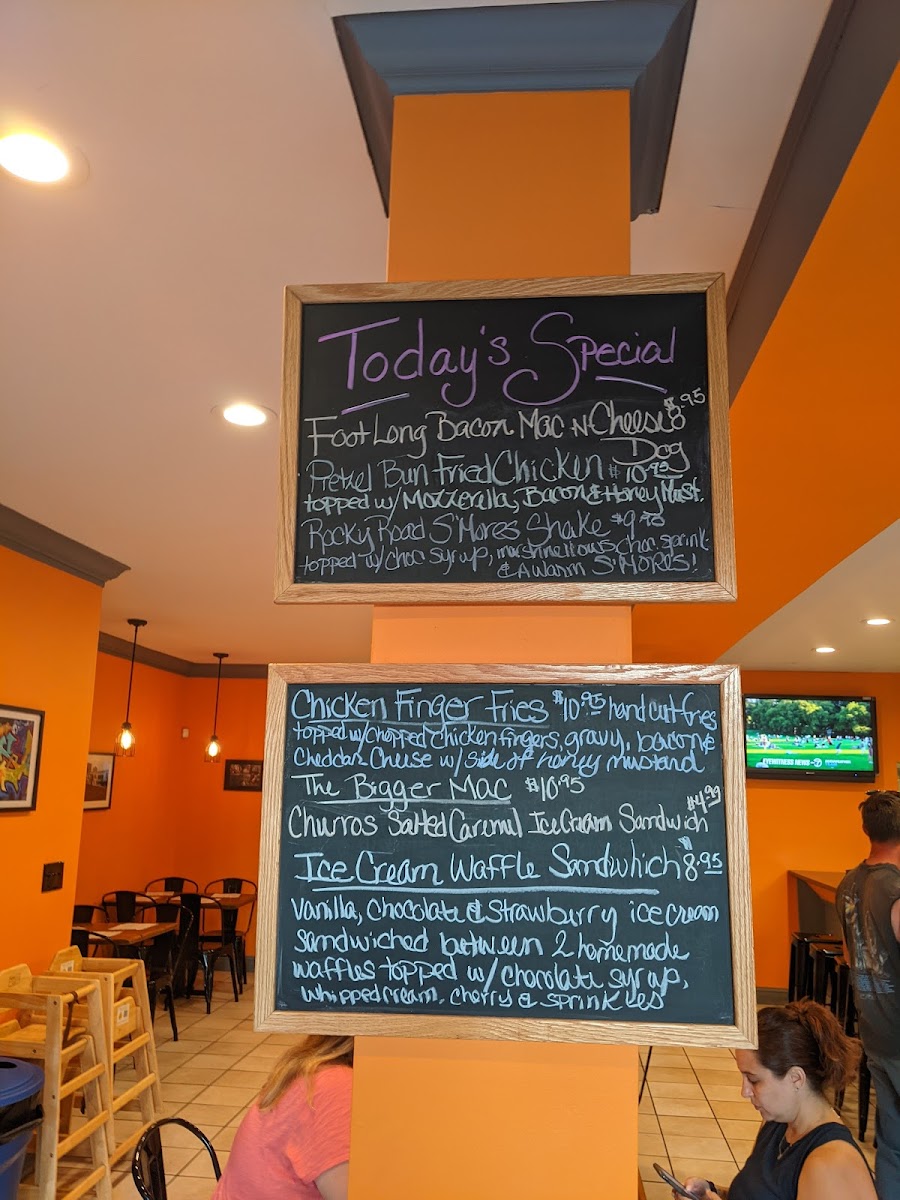 Today's Special
Foot Long Bacon Mac N Cheese $8.95
Dog
Pretzel Bun Fried Chicken $10.95
topped w/ Mozzerella, Bacon & Honey Must.
Rocky Road S'Mores Shake $9.95
topped w/ choc syrup, marshmellows, choc. sprink
& A Warm S'MORES!
Chicken Finger Fries $10.95 hand cut fries
topped w/ chopped chicken fingers, gravy, bacon &
Cheddar Cheese w/ side of honey mustand
The Bigger Mac $10.95
Churros Salted Caramel Ice Cream Sandwich $4.99
Ice Cream Waffle Sandwhich $8.95
Vanilla, Chocolate & Strawberry ice cream
sandwiched between 2 homemade
waffles topped w/ chocolate syrup,
whipped cream, cherry & sprinkles
EYEWITNESS NEWS 7